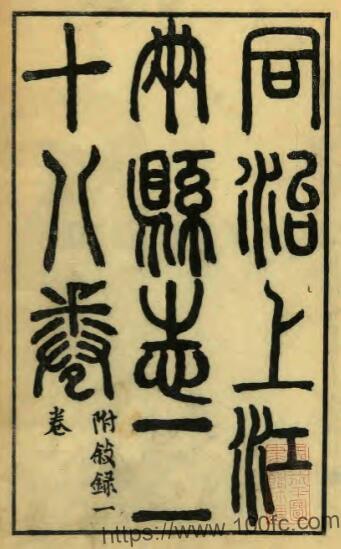 同治上江
兩縣志二
十八卷
附敘錄一
卷
https://www.100fc.com